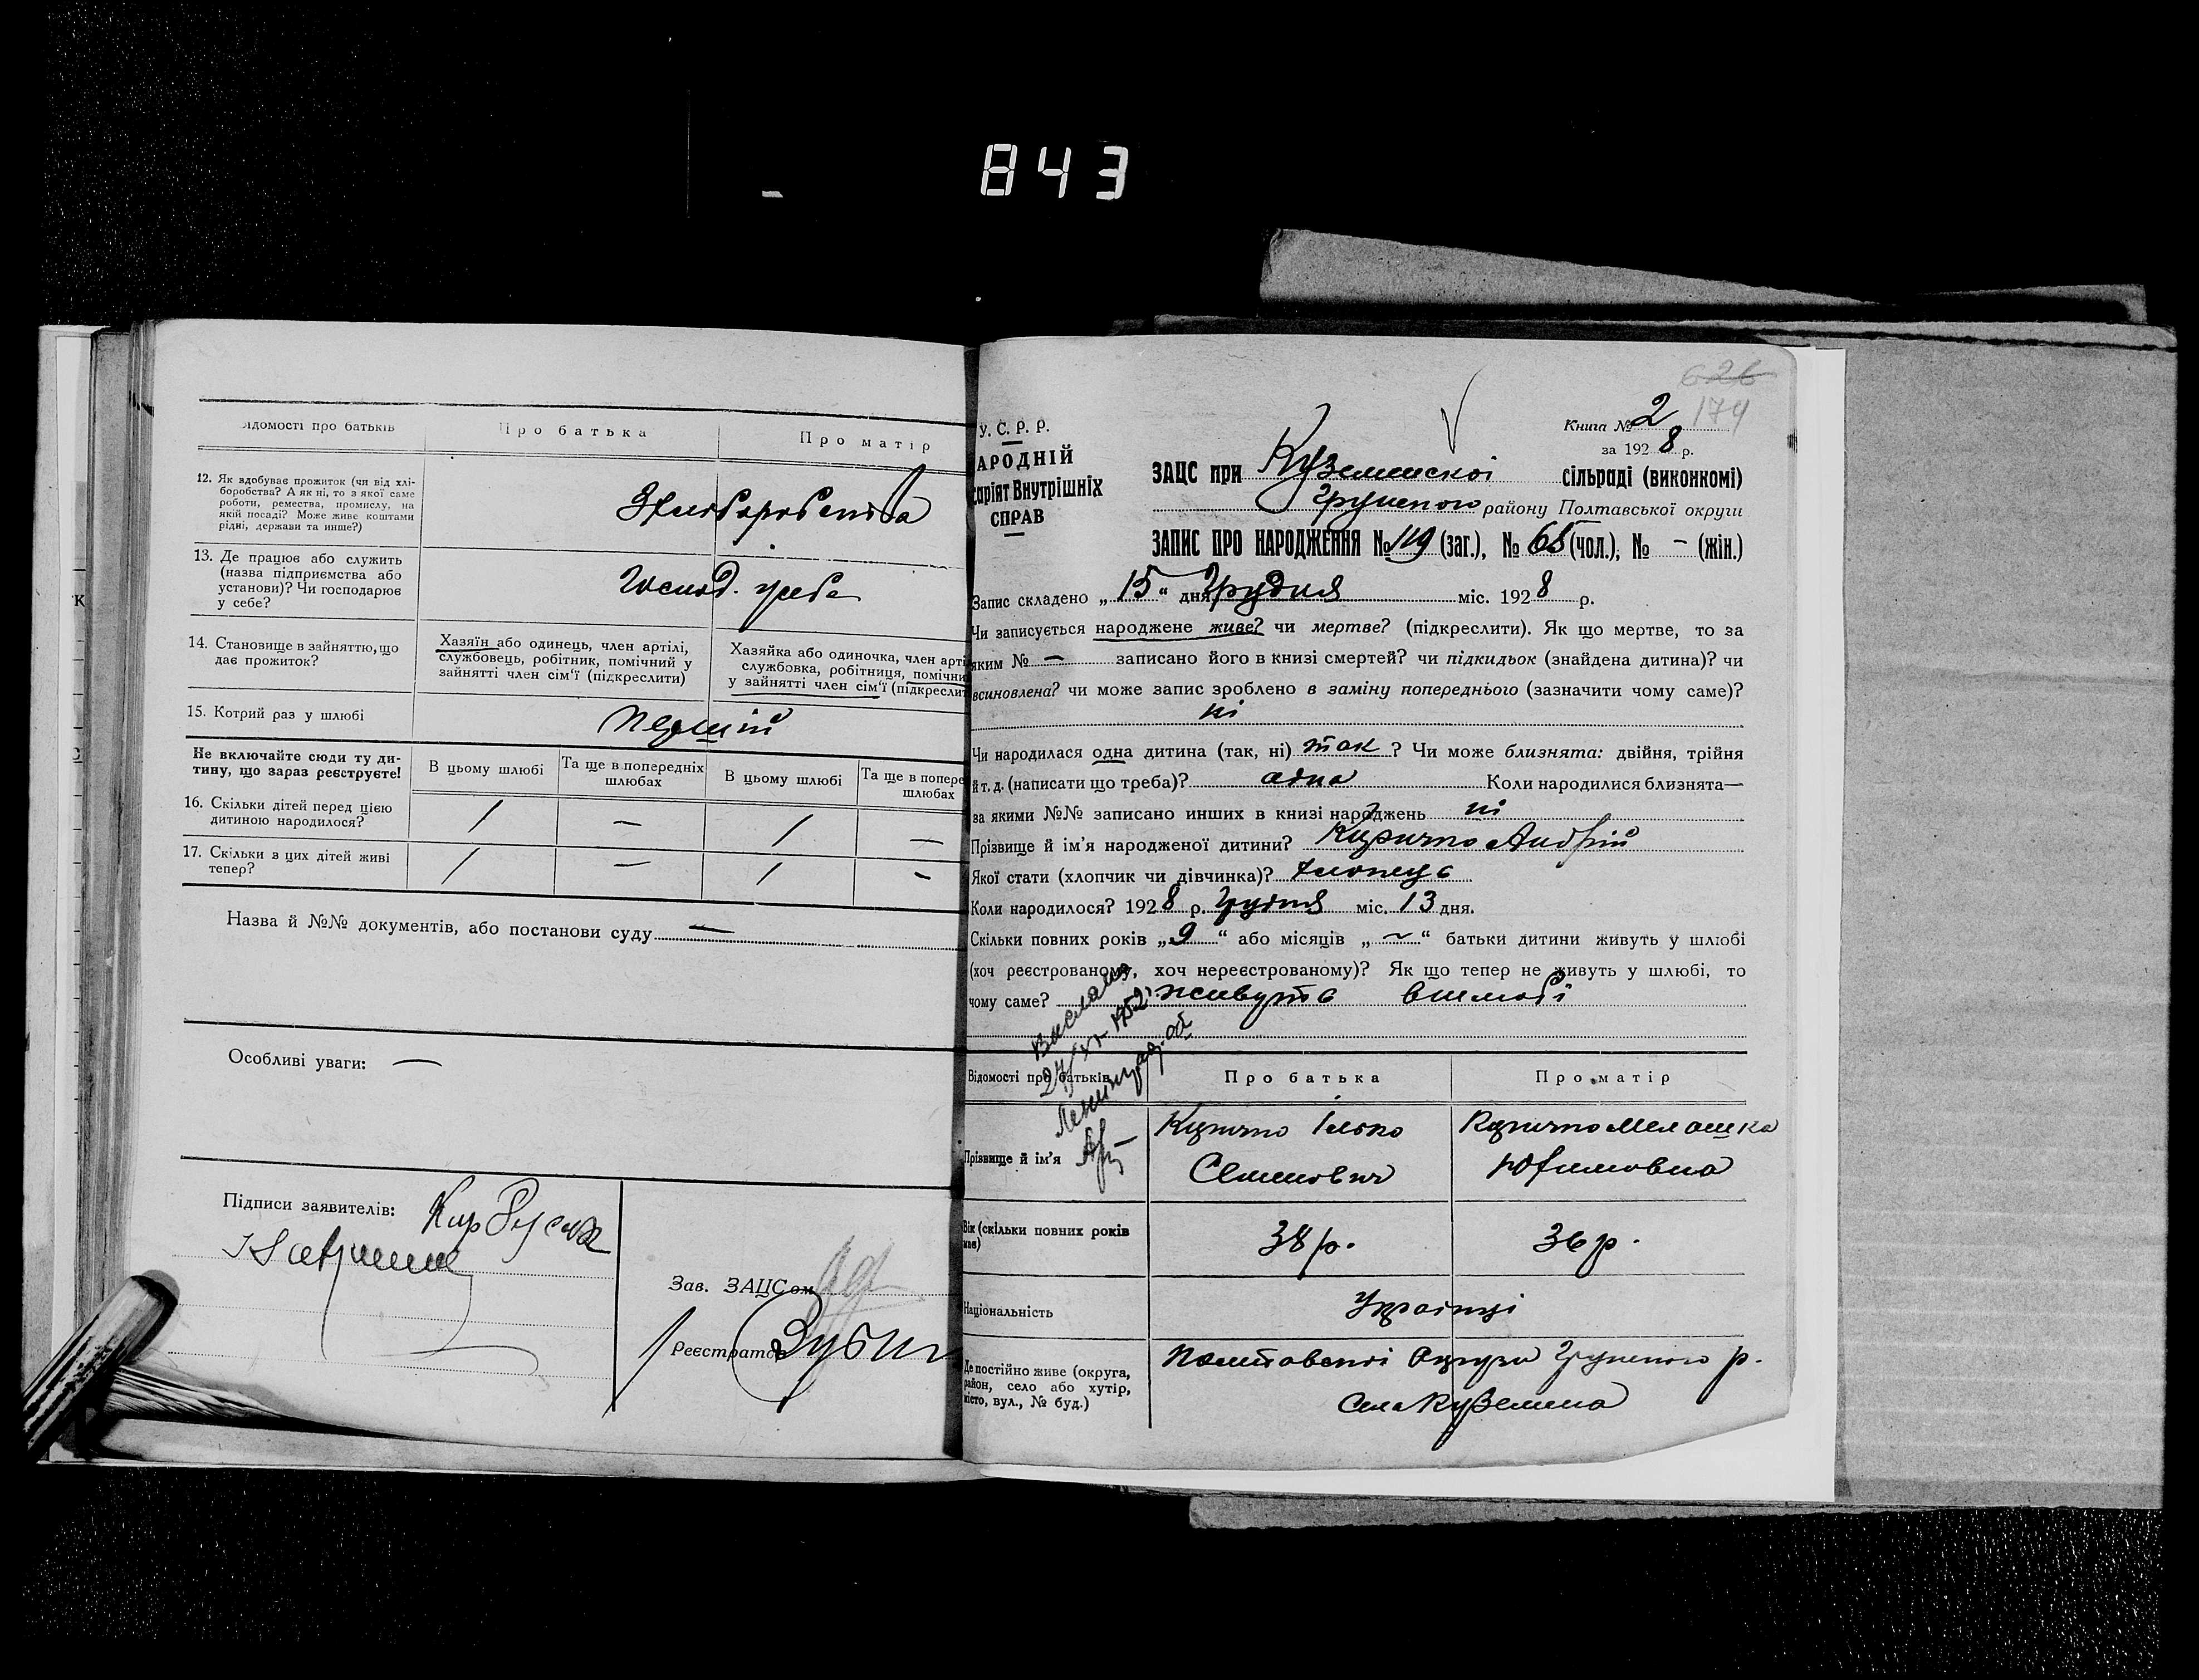 843
Відомості про батьків
Про батька
Про матір
12. Як здобуває прожиток (чи від хлі-
боробства? А як ні, то з якої саме
роботи, ремества, промислу, на
якій посаді? Може живе коштами
рідні, держави та инше?)
13. Де працює або служить
(назва підприємства або
установи)? Чи господарює
у себе?
14. Становище в зайняттю, що
дає прожиток?
Хазяїн або одинець, член артілі,
службовець, робітник, помічний у
зайнятті член сім'ї (підкреслити)
Хазяйка або одиночка, член арті
службовка, робітниця, помічни
у зайнятті член сім'ї (підкреслит
15. Котрий раз у шлюбі
перший
Не включайте сюди ту ди-
тину, що зараз реєструєте!
В цьому шлюбі
Та ще в попередніх
шлюбах
В цьому шлюбі
Та ще в попере
шлюбах
16. Скільки дітей перед цією
дитиною народилося?
/ — / —
17. Скільки з цих дітей живі
тепер?
/ — / -
Назва й №№ документів, або постанови суду —
Особливі уваги: —
Підписи заявителів:
Зав. ЗАЦСом
Реєстратор
626
174
У. С. Р. Р.
АРОДНІЙ
аріят Внутрішніх
СПРАВ
Книга № 2
за 1928 р.
ЗАЦС при Куземенскої сільраді (виконкомі)
Груньского району Полтавської округи
ЗАПИС ПРО НАРОДЖЕННЯ № 119 (заг.), № 65 (чол.), № - (жін.)
Запис складено „15" дня Грудня міс. 1928 р.
Чи записується народжене живе? чи мертве? (підкреслити). Як що мертве, то за
яким № — записано його в книзі смертей? чи підкидьок (знайдена дитина)? чи
всиновлена? чи може запис зроблено в заміну попереднього (зазначити чому саме)?
ні
Чи народилася одна дитина (так, ні) так? Чи може близнята: двійня, трійня
й т. д. (написати що треба)? одна Коли народилися близнята—
за якими №№ записано инших в книзі народжень ні
Прізвище й ім'я народженої дитини? Андрій
Якої стати (хлопчик чи дівчинка)? хлопець
Коли народилося? 1928 р. Грудня міс. 13 дня.
Скільки повних років „9" або місяців „~" батьки дитини живуть у шлюбі
(хоч реєстрованому, хоч нереєстрованому)? Як що тепер не живуть у шлюбі, то
чому саме? живуть в шлюбі
Відомості про батьків
Про батька
Про матір
Прізвище й ім'я
Ілько
Семенович
Мелашка
Юхимовна
Вік (скільки повних років
має)
38 р.
36 р.
Національність
Українці
Де постійно живе (округа,
район, село або хутір,
місто, вул., № буд.)
Полтавської Округи Груньского р.
Села Куземена